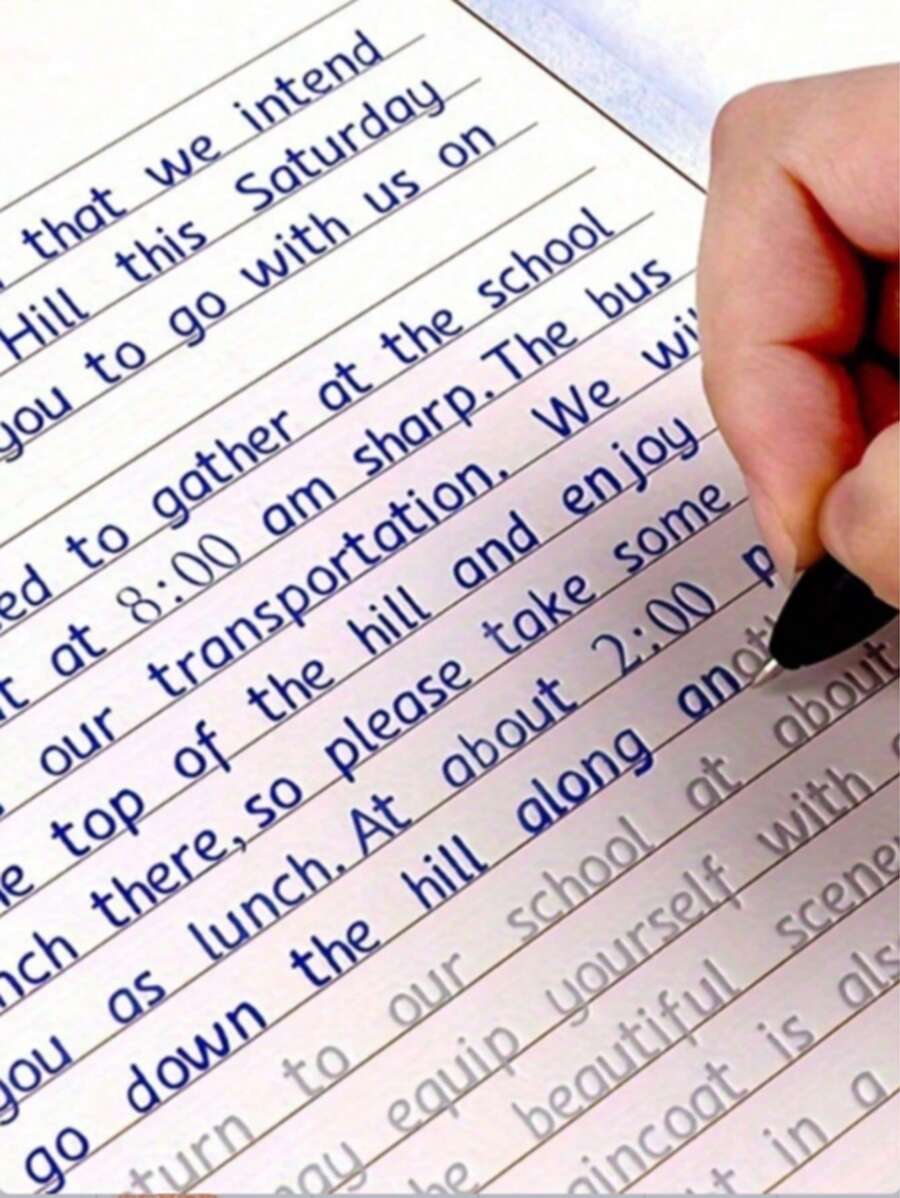 that we intend
Hill this Saturday
you to go with us on
to gather at the school
at 8:00 am sharp. The bus
our transportation. We
top of the hill and enjoy
there, so please take some
you as lunch. At about 2:00
go down the hill along
to our school at about
equip yourself with
beautiful
is
in a